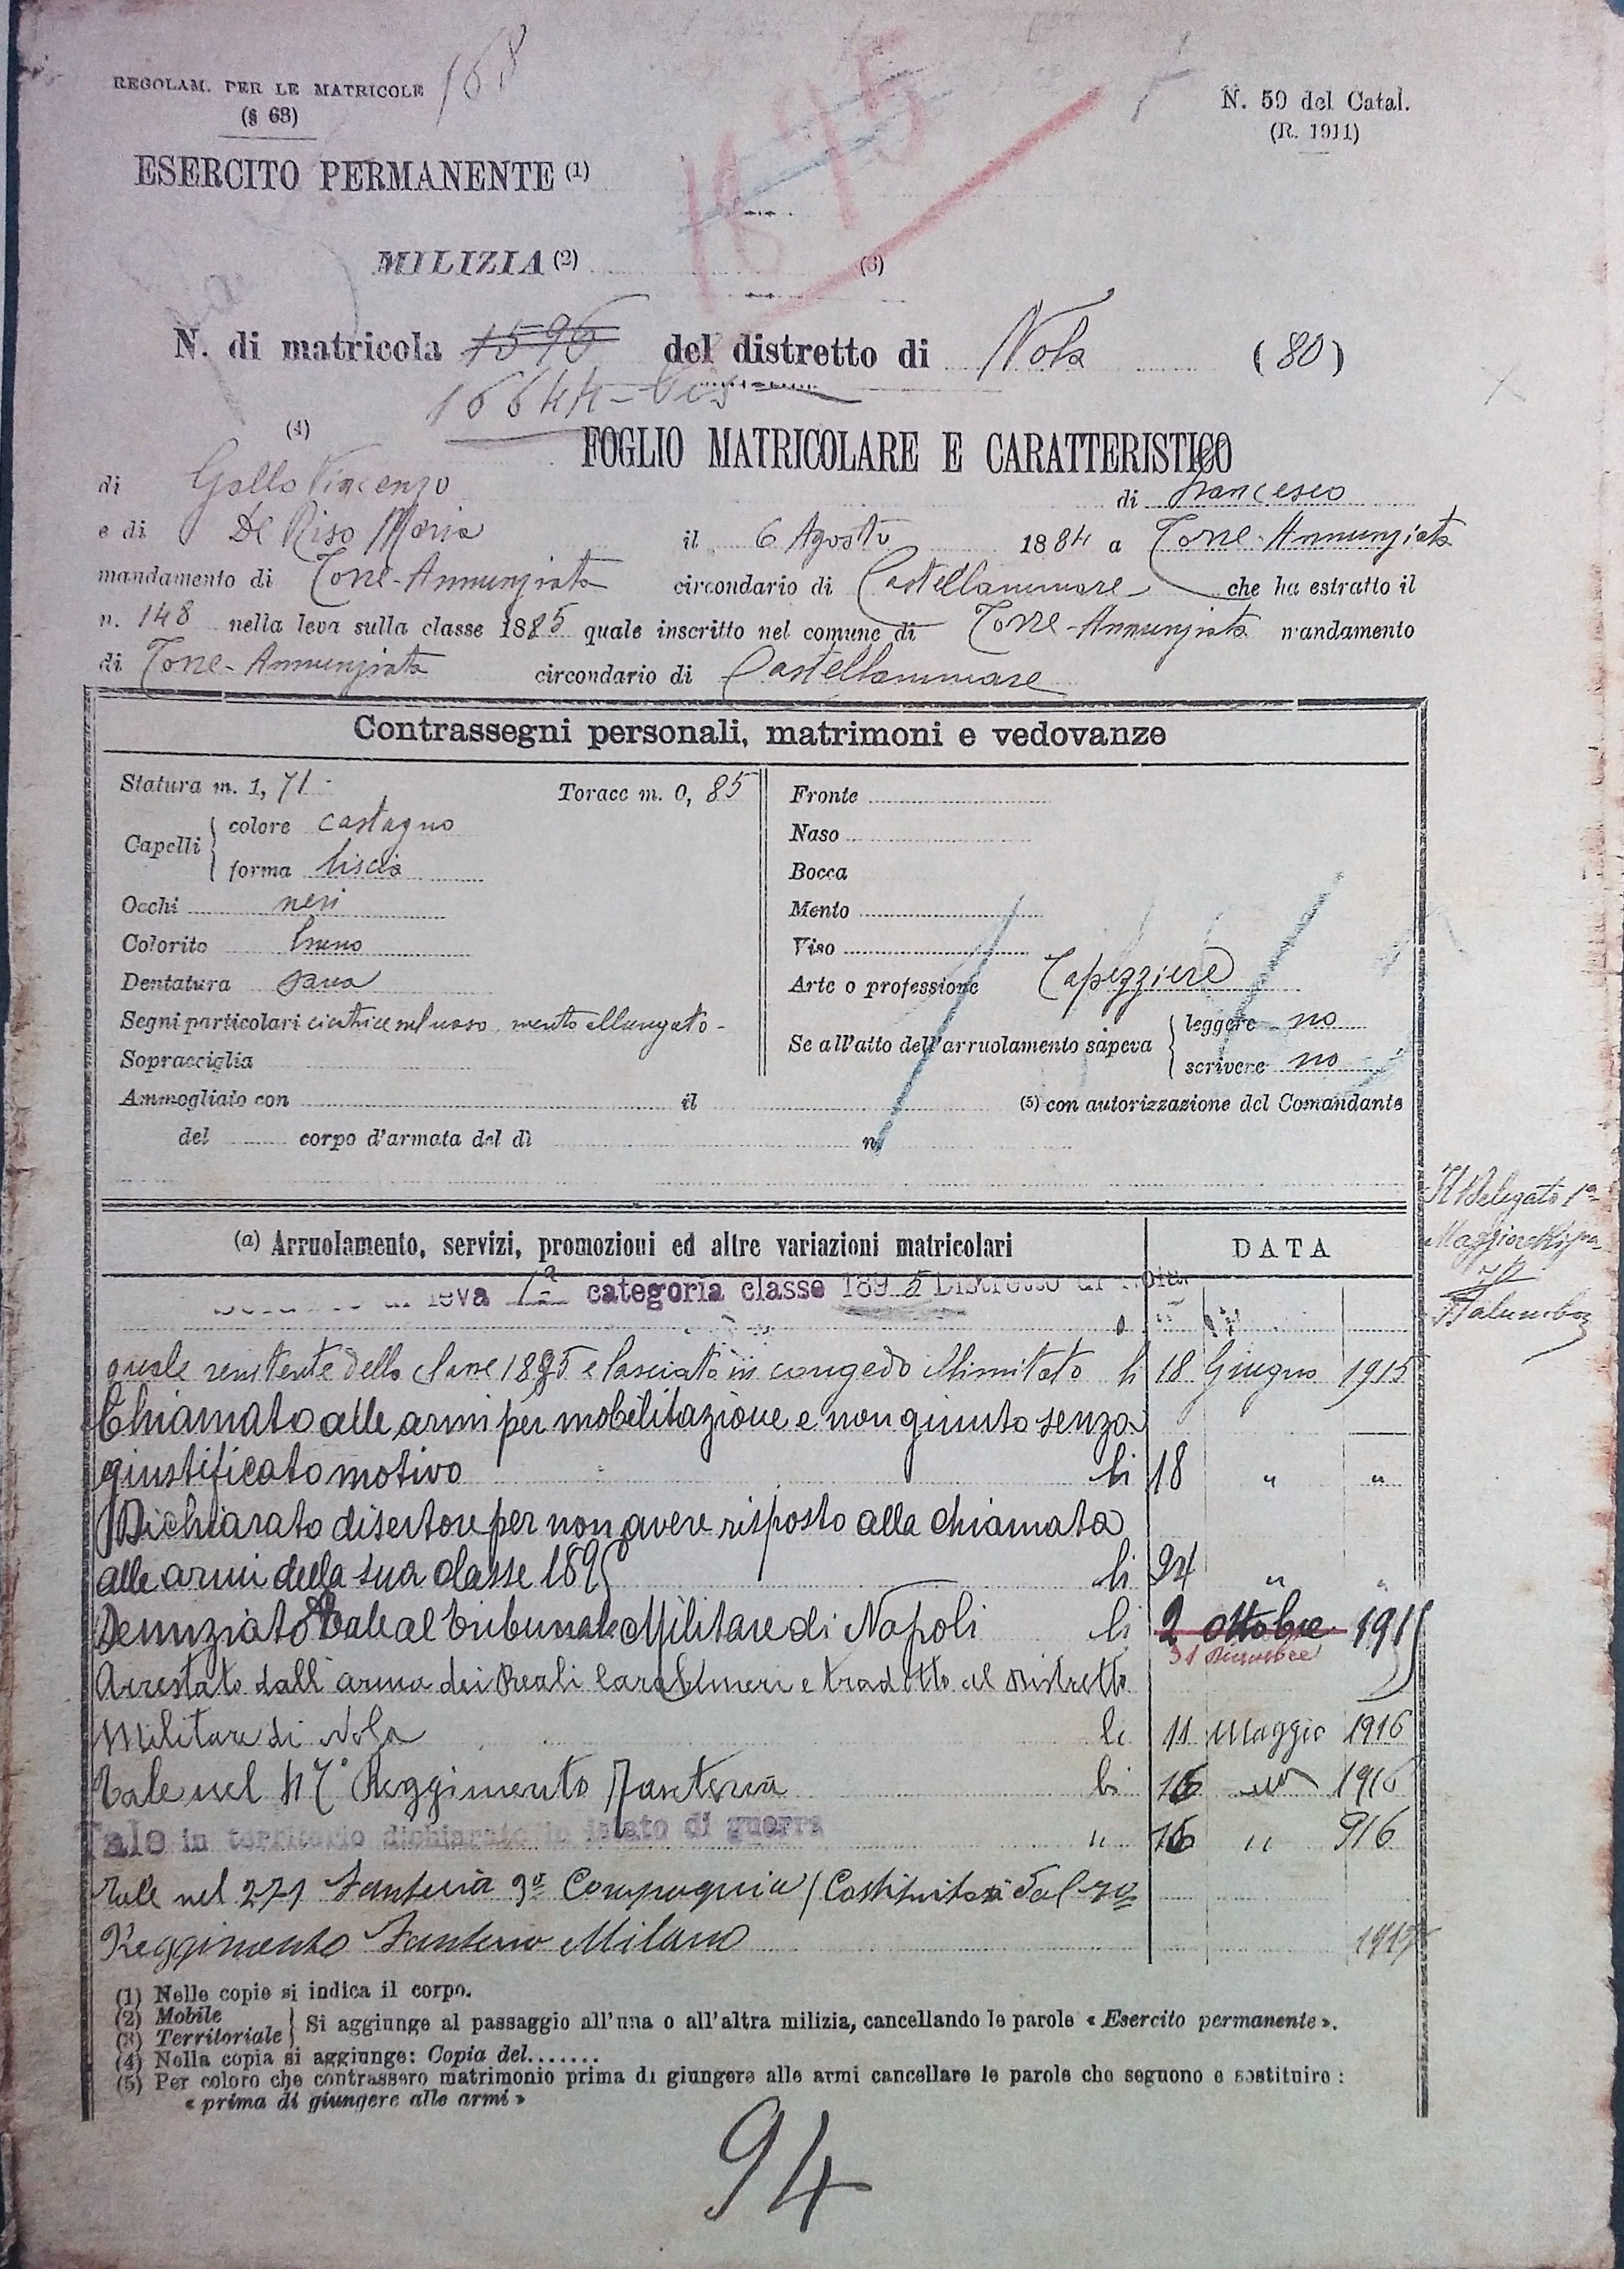 REGOLAM. PER LE MATRICOLE 168
(§ 63)
N. 59 del Catal.
(R. 1911)
1895
ESERCITO PERMANENTE (1)
MILIZIA (2) (3)
N. di matricola 1596 del distretto di Nola (80)
16644-bis
(4)
FOGLIO MATRICOLARE E CARATTERISTICO
di Gallo Vincenzo di Francesco
e di De Riso Maria il 6 Agosto 1884 a Torre-Annunziata
mandamento di Torre-Annunziata circondario di Castellammare che ha estratto il
n. 148 nella leva sulla classe 1885 quale inscritto nel comune di Torre-Annunziata mandamento
di Torre-Annunziata circondario di Castellammare
Contrassegni personali, matrimoni e vedovanze
Statura m. 1,71 Torace m. 0,85
Capelli colore castagno
forma liscia
Occhi neri
Colorito bruno
Dentatura sana
Segni particolari cicatrice nel naso mento allungato-
Sopracciglia
Ammogliato con il (5) con autorizzazione del Comandante
del corpo d'armata del dì n.
Fronte
Naso
Bocca
Mento
Viso
Arte o professione Tapezziere
Se all'atto dell'arruolamento sapeva leggere no
scrivere no
Il Delegato
Maggiore
Palumbo
(a) Arruolamento, servizi, promozioni ed altre variazioni matricolari DATA
di leva 1ª categoria classe 1895 Distretto di Nola
quale renitente della classe 1885 e lasciato in congedo illimitato li 18 Giugno 1915
Chiamato alle armi per mobilitazione e non giunto senza
giustificato motivo li 18 " "
Dichiarato disertore per non avere risposto alla chiamata
alle armi della sua classe 1895 li 24 " "
Denunziato tale al tribunale Militare di Napoli li 2 ottobre 1915
31 Dicembre
Arrestato dall'arma dei Reali Carabinieri e tradotto al Distretto
Militare di Nola li 11 Maggio 1916
Tale nel 47° Reggimento Fanteria li 16 1916
Tale in territorio dichiarato in istato di guerra " 16 " 916
Tale nel 271 Fanteria 9ª Compagnia (Costituitosi dal
Reggimento Fanteria Milano 1917
(1) Nelle copie si indica il corpo.
(2) Mobile
(3) Territoriale
Si aggiunge al passaggio all'una o all'altra milizia, cancellando le parole « Esercito permanente ».
(4) Nella copia si aggiunge: Copia del.......
(5) Per coloro che contrassero matrimonio prima di giungere alle armi cancellare le parole che seguono e sostituire :
« prima di giungere alle armi »
94